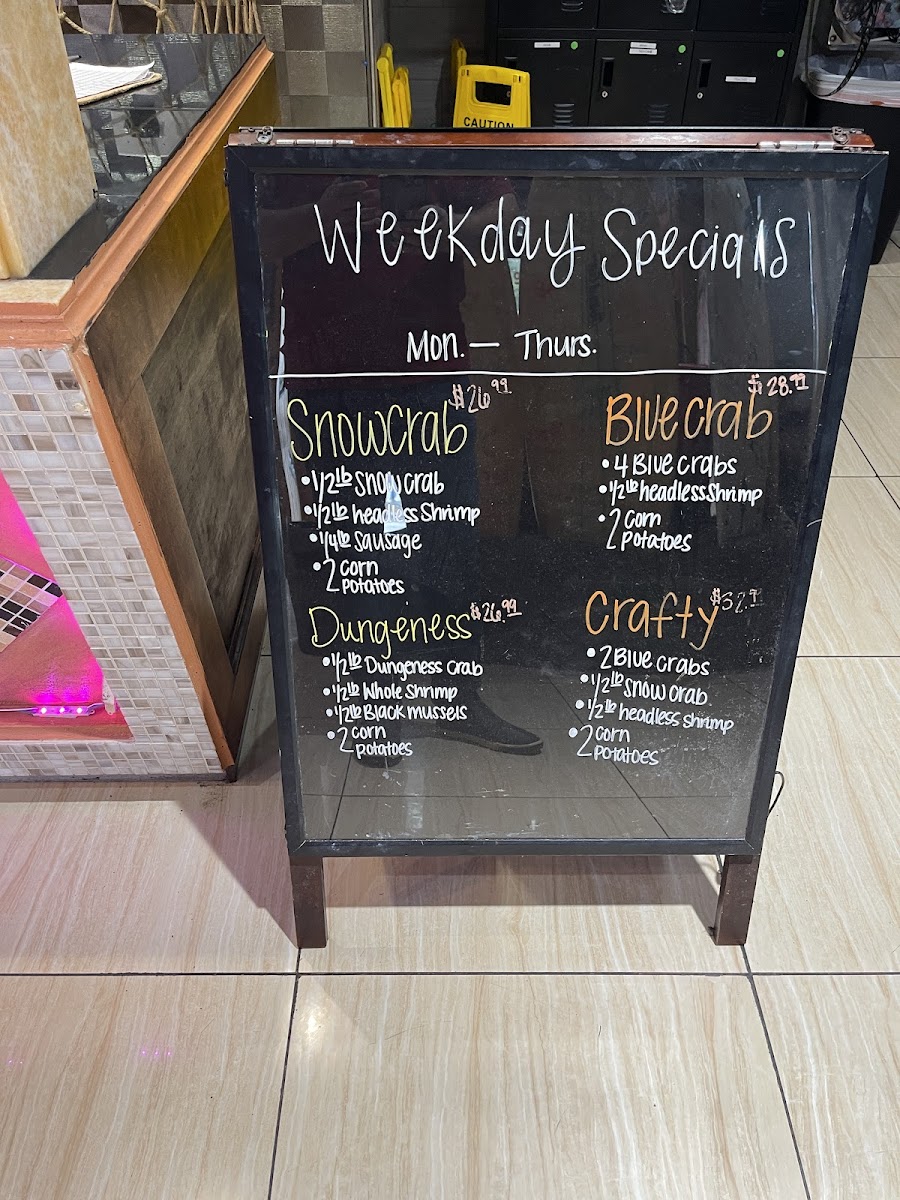 CAUTION
Weekday Specials
Mon. — Thurs.
Snowcrab $26.99
• 1/2 lb Snow crab
• 1/2 lb headless Shrimp
• 1/4 lb Sausage
• 2 corn
potatoes
Dungeness $26.99
• 1/2 lb Dungeness crab
• 1/2 lb Whole Shrimp
• 1/2 lb Black mussels
• 2 corn
potatoes
Blue crab $28.99
• 4 Blue crabs
• 1/2 lb headless Shrimp
• 2 corn
potatoes
Crafty $32.99
• 2 Blue crabs
• 1/2 lb snow crab
• 1/2 lb headless shrimp
• 2 corn
potatoes